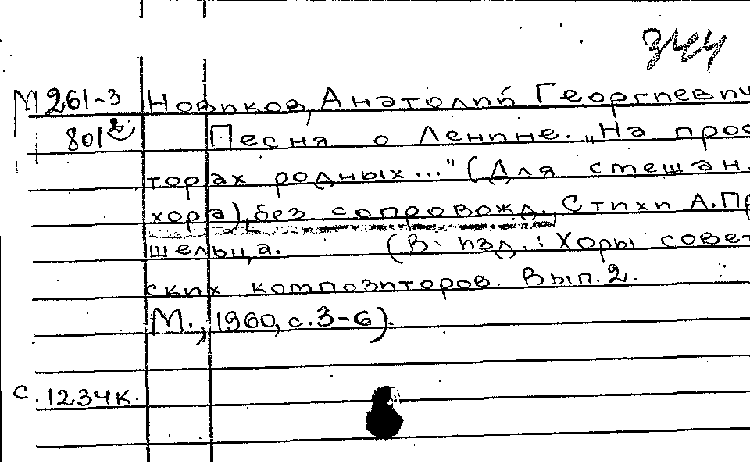 344
М 261-3 Новиков, Анатолий Георгиевич
801 Песня о Ленине. „На прос
торах родных..." (Для смешан.
хора), без сопровожд. Стихи А. Пр
шельца. (В изд.: Хоры совет
ских композиторов. Вып. 2.
М., 1960, с. 3-6).
с. 1234к.